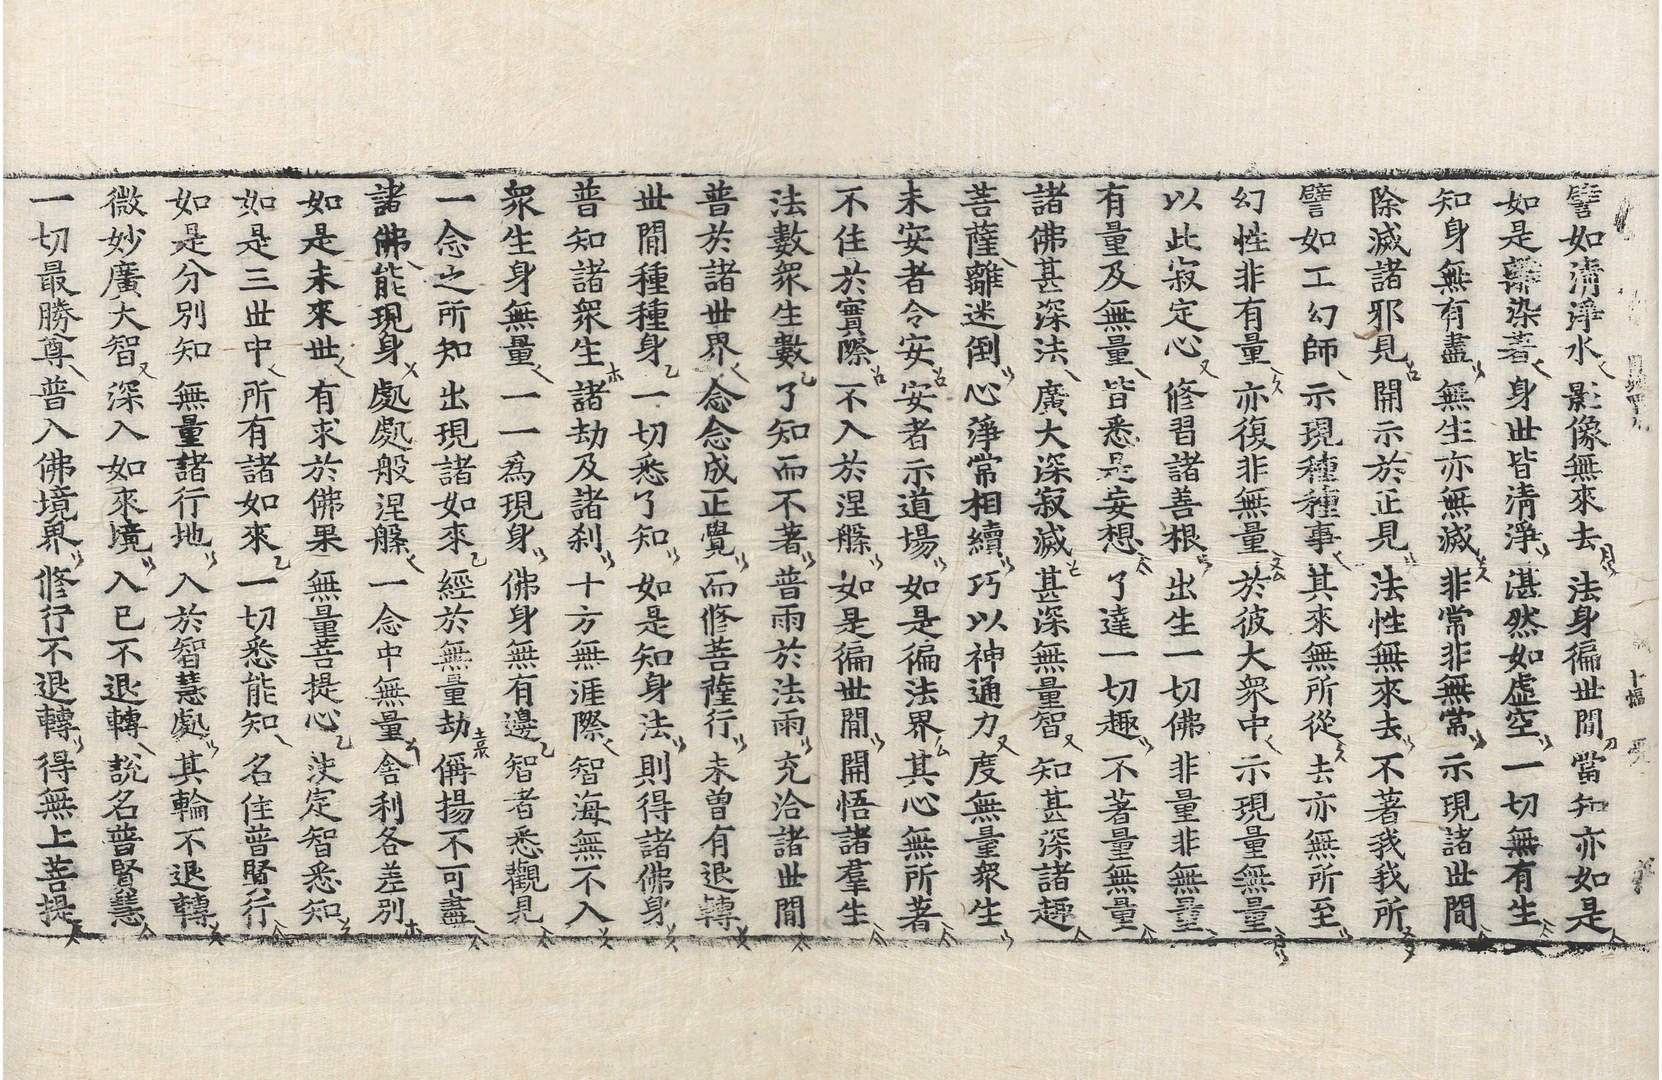 譬如淸淨水 影像無來去 法身徧世間 當知亦如是
如是離染著 身世皆淸淨 湛然如虛空 一切無有生
知身無有盡 無生亦無滅 非常非無常 示現諸世間
除滅諸邪見 開示於正見 法性無來去 不著我我所
譬如工幻師 示現種種事 其來無所從 去亦無所至
幻性非有量 亦復非無量 於彼大衆中 示現量無量
以此寂定心 修習諸善根 出生一切佛 非量非無量
有量及無量 皆悉是妄想 了達一切趣 不著量無量
諸佛甚深法 廣大深寂滅 甚深無量智 知甚深諸趣
菩薩離迷倒 心淨常相續 巧以神通力 度無量衆生
未安者令安 安者示道場 如是徧法界 其心無所著
不住於實際 不入於涅槃 如是徧世間 開悟諸羣生
法數衆生數 了知而不著 普雨於法雨 充洽諸世間
普於諸世界 念念成正覺 而修菩薩行 未曾有退轉
世間種種身 一切悉了知 如是知身法 則得諸佛身
普知諸衆生 諸劫及諸刹 十方無涯際 智海無不入
衆生身無量 一一爲現身 佛身無有邊 智者悉觀見
一念之所知 出現諸如來 經於無量劫 偁揚不可盡
諸佛能現身 處處般涅槃 一念中無量 舍利各差別
如是未來世 有求於佛果 無量菩提心 決定智悉知
如是三世中 所有諸如來 一切悉能知 名住普賢行
如是分別知 無量諸行地 入於智慧處 其輪不退轉
微妙廣大智 深入如來境 入已不退轉 說名普賢慧
一切最勝尊 普入佛境界 修行不退轉 得無上菩提